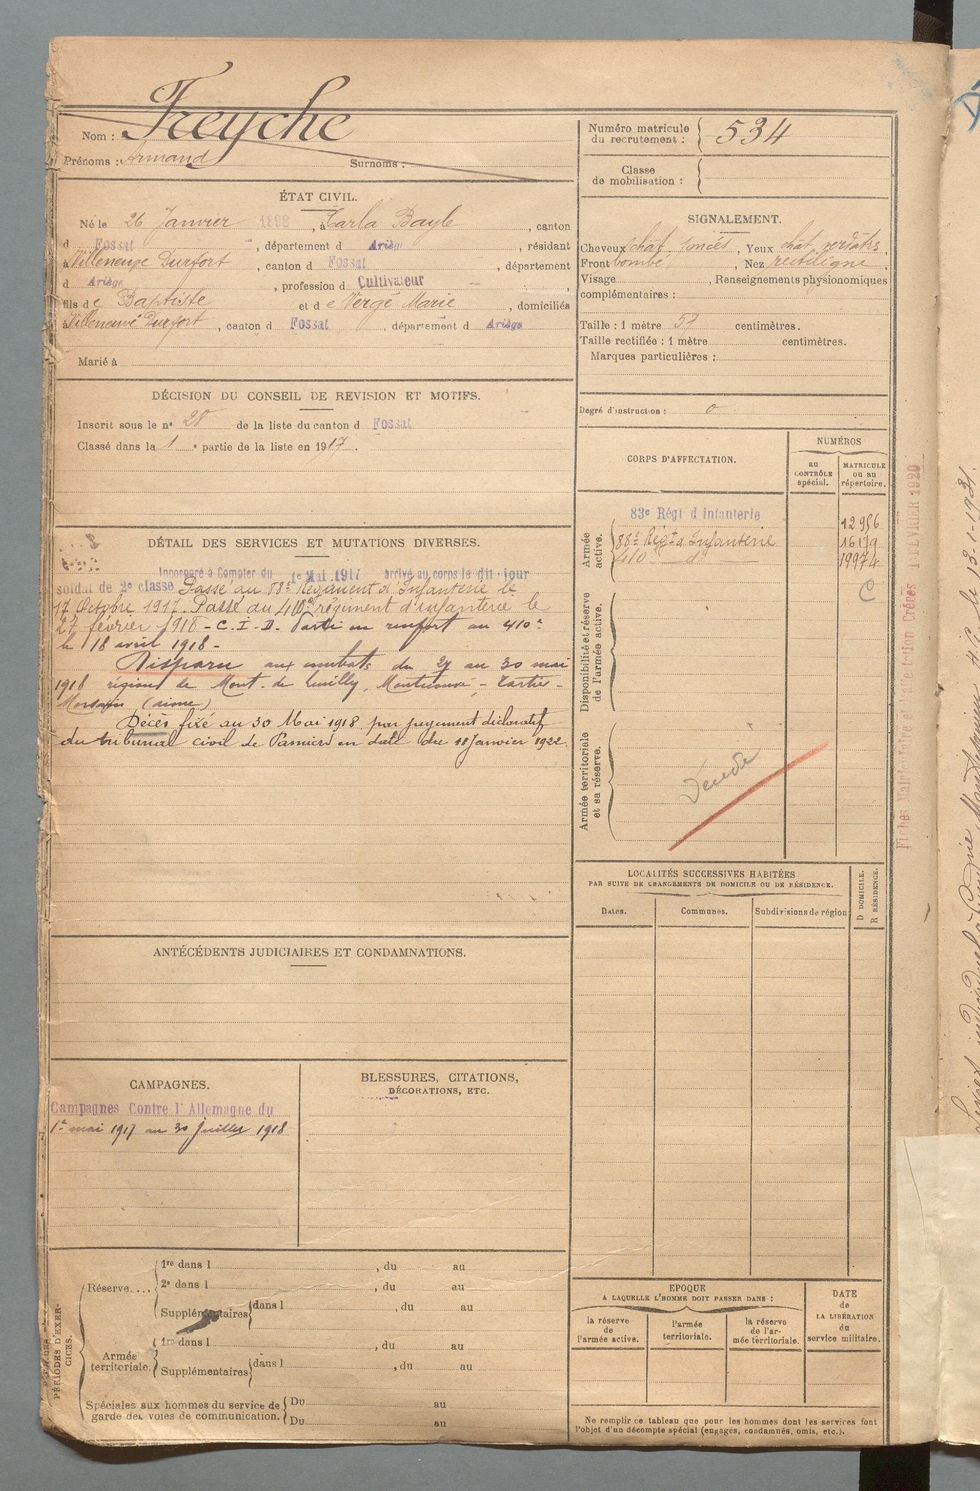 Nom : Freyche
Prénoms : Armand Surnoms :
Numéro matricule du recrutement : 534
Classe de mobilisation :
ÉTAT CIVIL.
Né le 26 Janvier 1898, à Carla Bayle, canton
d Fossat, département d Ariège, résidant
à Villeneuve Durfort, canton d Fossat, département
d Ariège, profession d Cultivateur
fils de Baptiste et de Vergé Marie, domiciliés
à Villeneuve Durfort, canton d Fossat, département d Ariège
Marié à
SIGNALEMENT.
Cheveux chat. foncés, Yeux chat. verdâtres,
Front bombé, Nez rectiligne,
Visage, Renseignements physionomiques
complémentaires :
Taille : 1 mètre 57 centimètres.
Taille rectifiée : 1 mètre centimètres.
Marques particulières :
Degré d'instruction : 0
DÉCISION DU CONSEIL DE REVISION ET MOTIFS.
Inscrit sous le nº 28 de la liste du canton d Fossat
Classé dans la 1e partie de la liste en 1917.
CORPS D'AFFECTATION.
NUMÉROS
AU CONTRÔLE spécial.
MATRICULE OU AU répertoire.
Armée active.
83e Régt d'Infanterie 12956
88e Régt d'Infanterie 16179
410e dº 19974
C
Disponibilité et réserve de l'armée active.
Armée territoriale et sa réserve.
Décédé
DÉTAIL DES SERVICES ET MUTATIONS DIVERSES.
Incorporé à Compter du 1er Mai 1917 arrivé au corps le dit jour
soldat de 2e classe Passé au 88e Régiment d'Infanterie le
17 Octobre 1917. Passé au 410e régiment d'infanterie le
27 février 1918 - C.I.D. Parti en renfort au 410e
le 18 avril 1918 -
Disparu aux combats du 27 au 30 mai
1918 région de Mont. de
(aisne)
Décès fixé au 30 Mai 1918 par jugement déclaratif
du tribunal civil de Pamiers en date du 18 Janvier 1922.
LOCALITÉS SUCCESSIVES HABITÉES
PAR SUITE DE CHANGEMENTS DE DOMICILE OU DE RÉSIDENCE.
Dates. Communes. Subdivisions de région
D DOMICILE.
R RÉSIDENCE.
ANTÉCÉDENTS JUDICIAIRES ET CONDAMNATIONS.
CAMPAGNES.
Campagnes Contre l'Allemagne du
1er mai 1917 au 30 Juillet 1918
BLESSURES, CITATIONS,
DÉCORATIONS, ETC.
PÉRIODES D'EXERCICES.
Réserve....
1re dans l , du au
2e dans l , du au
Supplémentaires dans l , du au
Armée territoriale.
1re dans l , du au
Supplémentaires dans l , du au
Spéciales aux hommes du service de garde des voies de communication.
Du au
Du au
EPOQUE
A LAQUELLE L'HOMME DOIT PASSER DANS :
la réserve de l'armée active.
l'armée territoriale.
la réserve de l'armée territoriale.
DATE de LA LIBÉRATION du service militaire.
Ne remplir ce tableau que pour les hommes dont les services font
l'objet d'un décompte spécial (engagés, condamnés, omis, etc.).